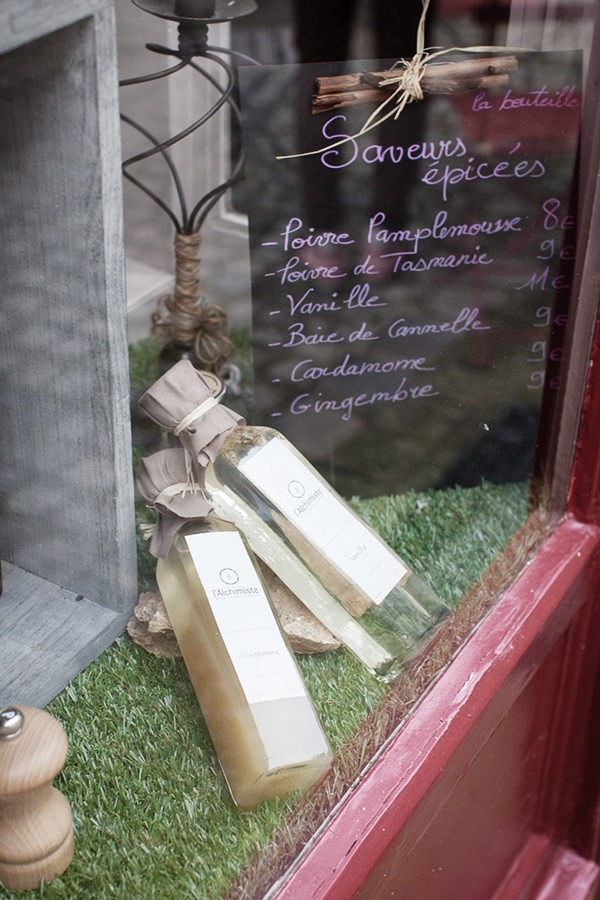 la bouteille
Saveurs
épicées
- Poivre Pamplemousse 8€
- Poivre de Tasmanie 9€
- Vanille 11€
- Baie de Cannelle 9€
- Cardamome 9€
- Gingembre 9€
l'Alchimiste
Vanille
l'Alchimiste
Gingembre